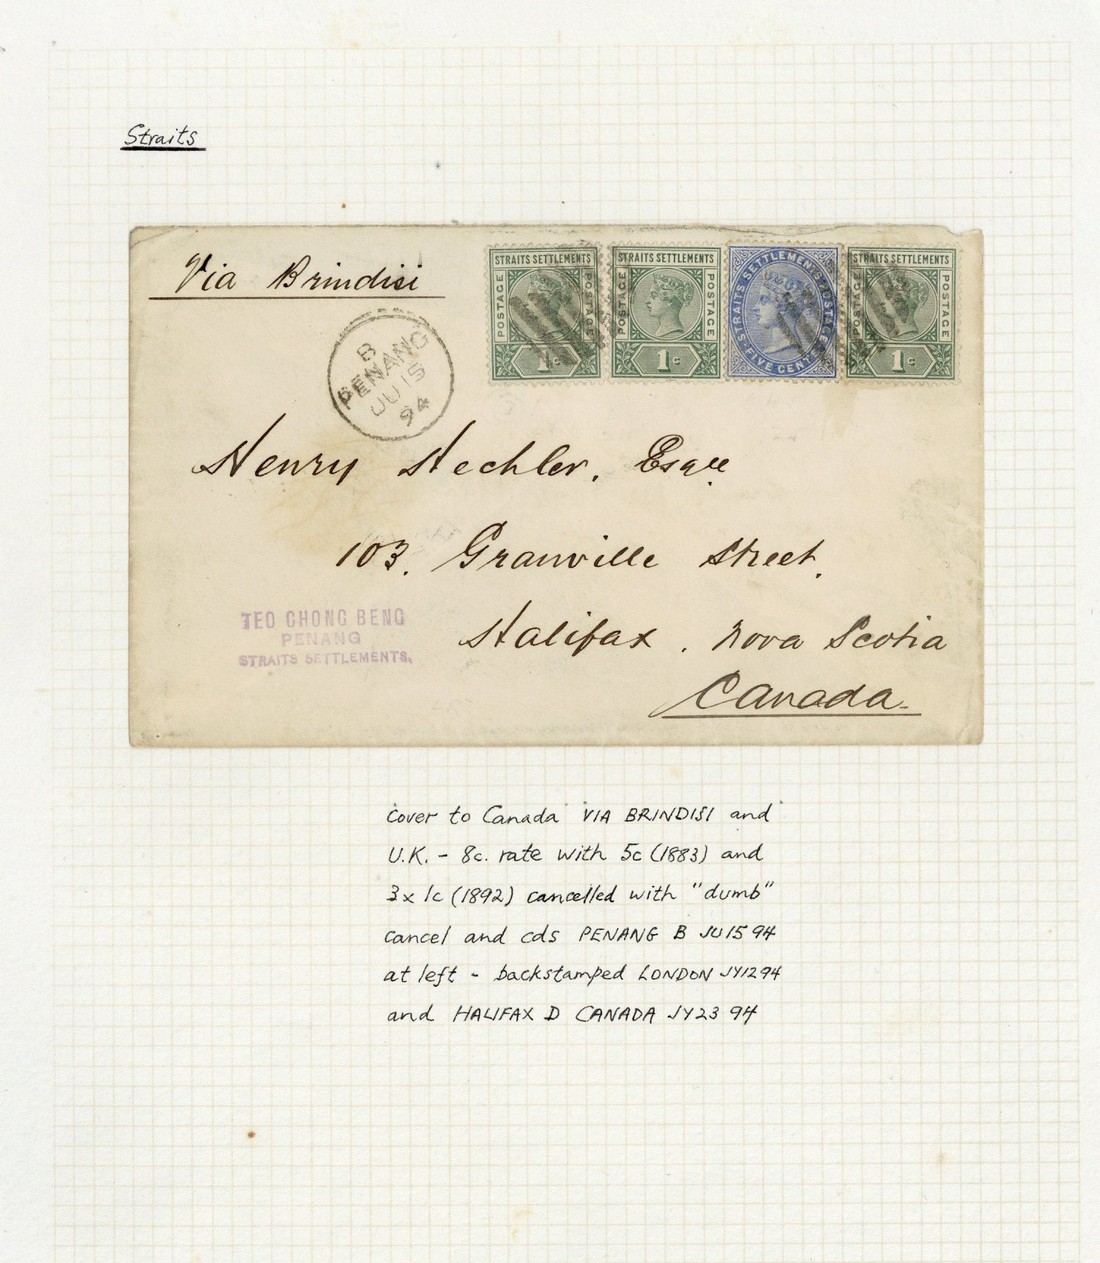 Straits
Via Brindisi
STRAITS SETTLEMENTS
POSTAGE
POSTAGE
1c
STRAITS SETTLEMENTS
POSTAGE
POSTAGE
1c
STRAITS SETTLEMENTS POSTAGE
FIVE CENTS
STRAITS SETTLEMENTS
POSTAGE
POSTAGE
1c
B
PENANG
JU 15
94
Henry Hechler, Esqre
103. Granville Street.
Halifax. Nova Scotia
Canada.
TEO CHONG BENG
PENANG
STRAITS SETTLEMENTS.
Cover to Canada VIA BRINDISI and
U.K. - 8c. rate with 5c (1883) and
3x 1c (1892) cancelled with "dumb"
cancel and cds PENANG B JU15 94
at left - backstamped LONDON JY12 94
and HALIFAX D CANADA JY23 94